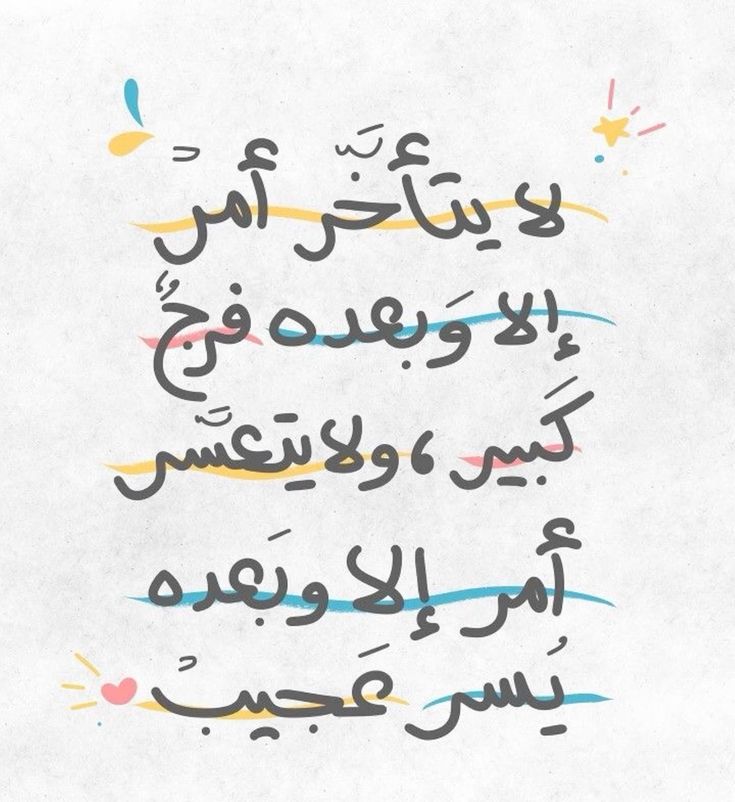 لا يتأخَّر أمرٌ
إلا وَبعده فرجٌ
كَبير، ولا يتعسَّر
أمر إلا وبَعده
يُسر عَجيبٌ